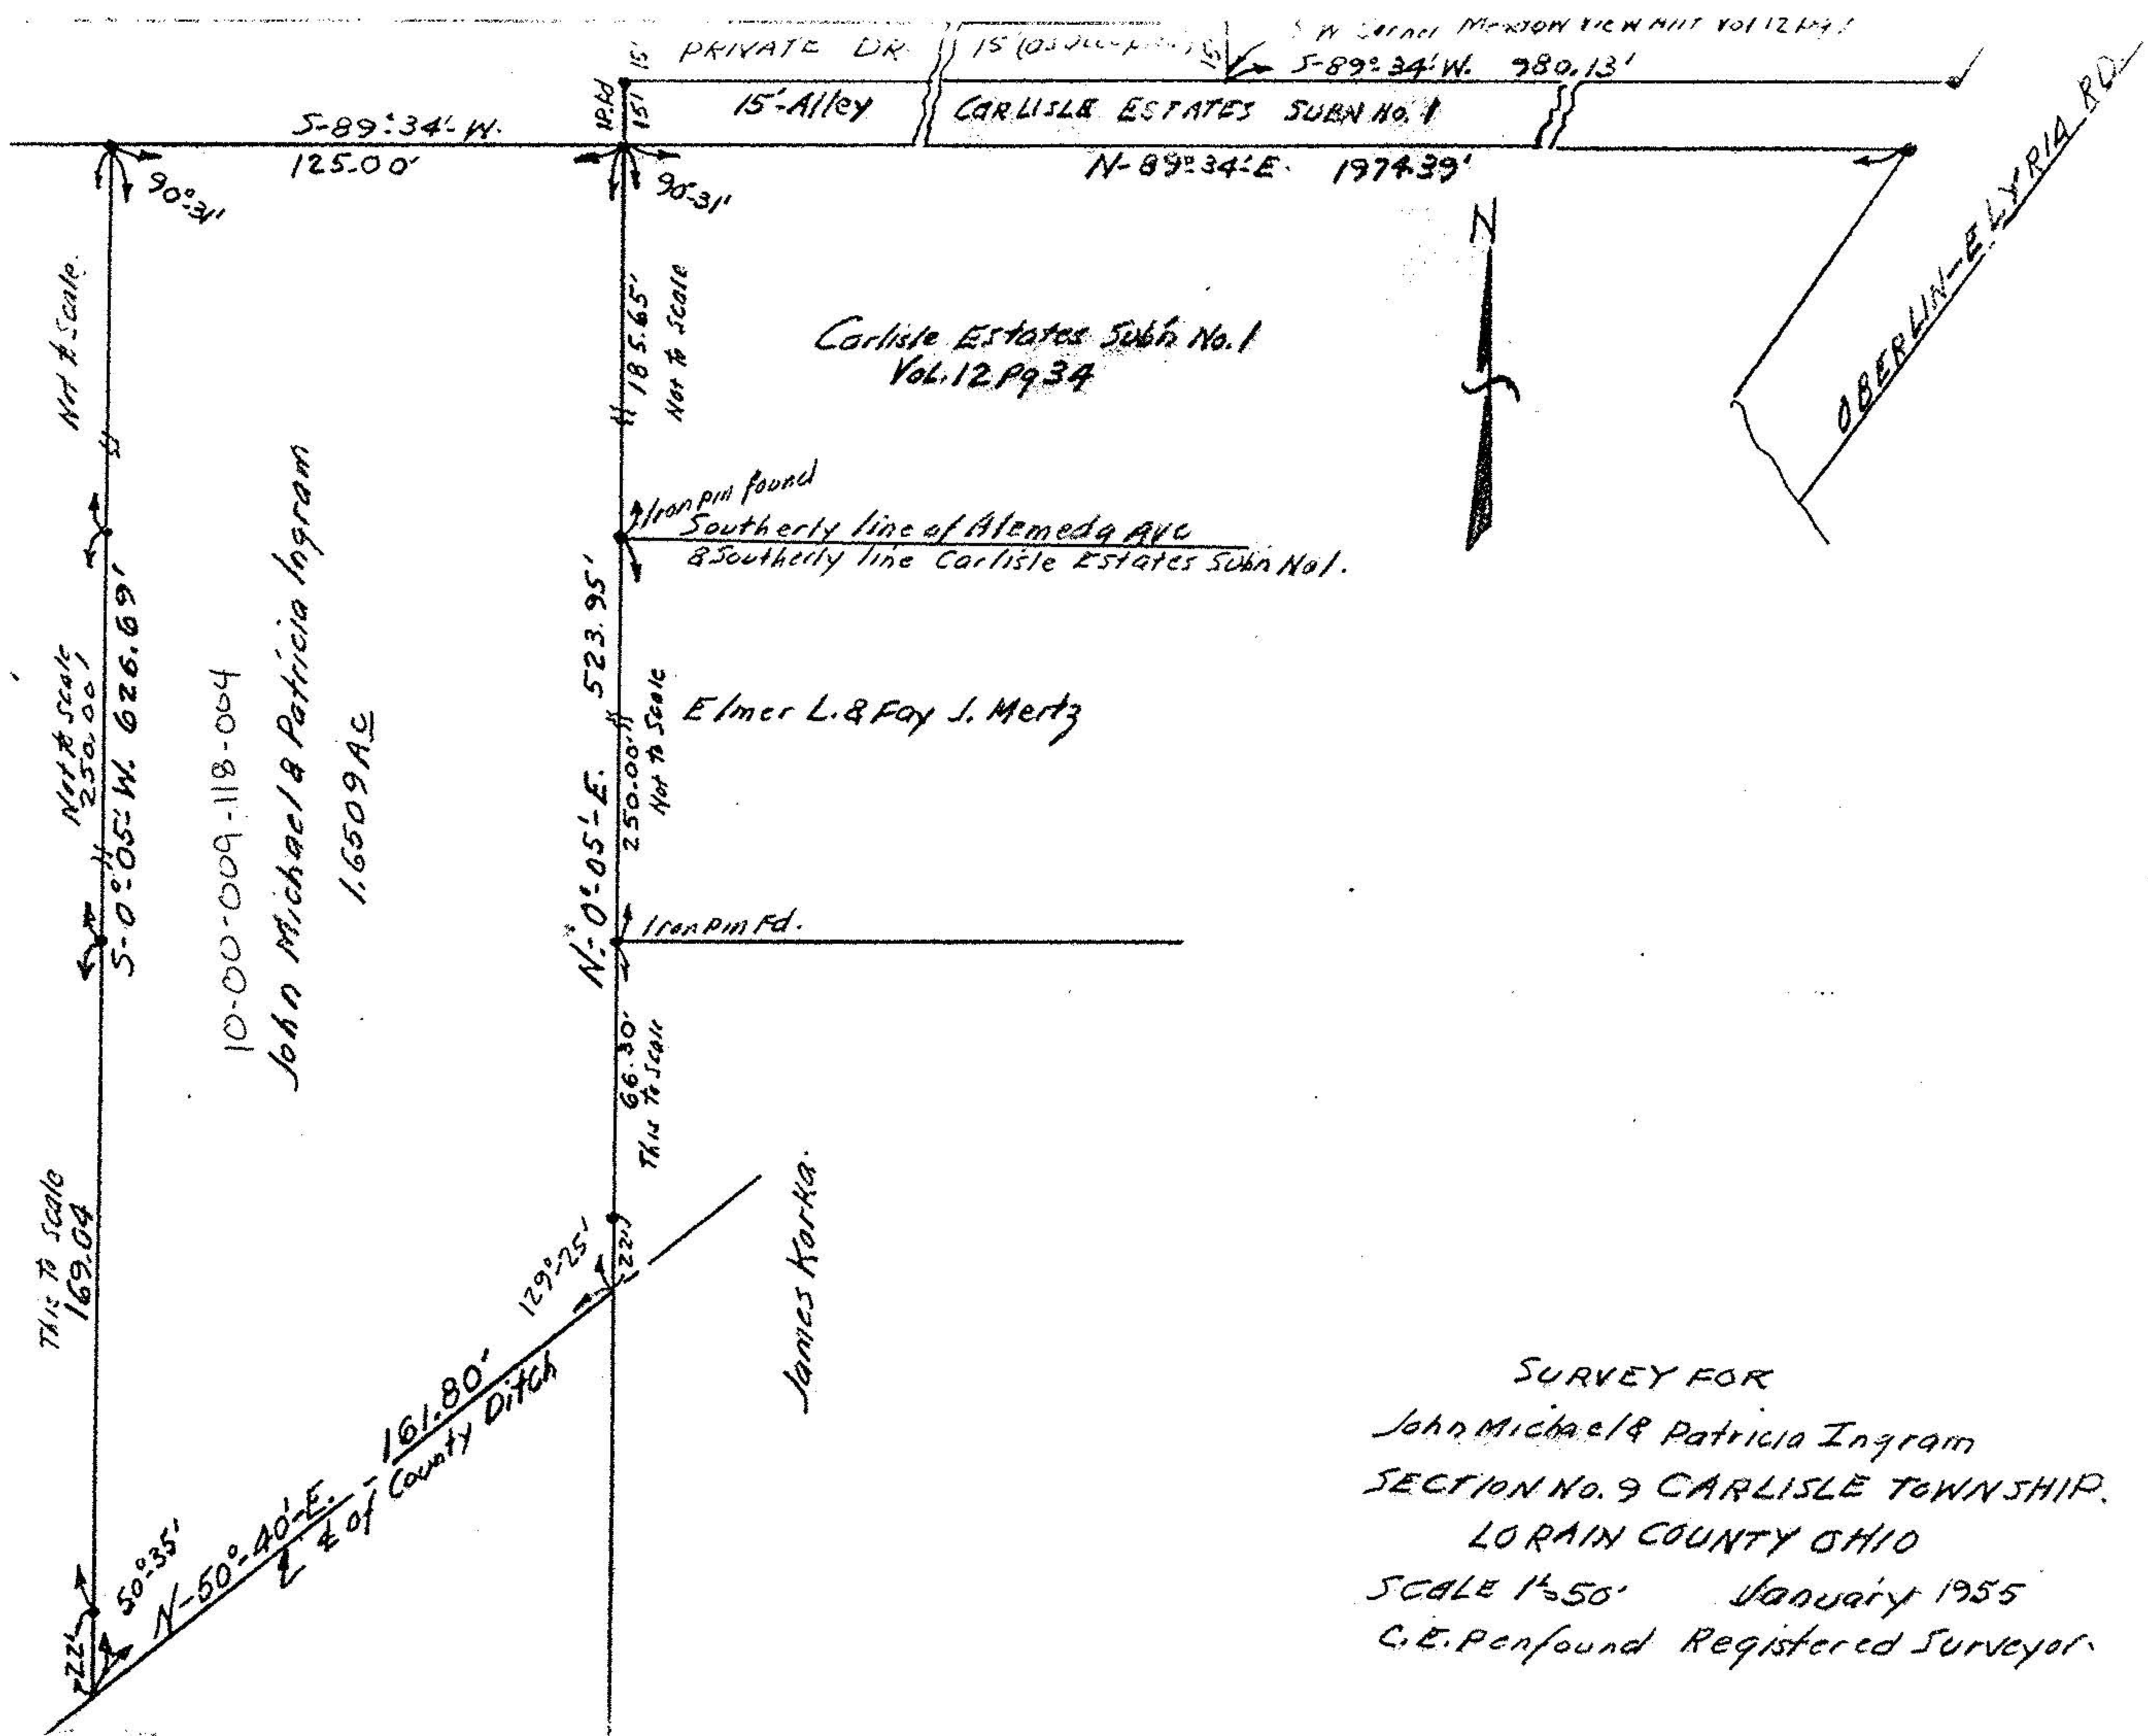 PRIVATE DR.
15'
15'
S W Corner Meadow View Allt Vol 12
S-89°-34'-W. 980.13'
IP.Fd
15'
15'-Alley
CARLISLE ESTATES SUBN NO. 1
S-89°-34'-W.
125.00'
N-89°-34'-E. 1974.39'
90°-31'
90°-31'
OBERLIN-ELYRIA RD.
N
Not to Scale.
185.65'
Not to Scale
Carlisle Estates Sub'n No. 1
Vol. 12 Pg 34
Iron pin found
Southerly line of Alemeda Ave
& Southerly line Carlisle Estates Subn No1.
Not to Scale
250.00'
S-0°-05'-W. 626.69'
10-00-009-118-004
John Michael & Patricia Ingram
1.6509 Ac
N-0°-05'-E. 523.95'
250.00'
Not to Scale
Elmer L. & Fay J. Mertz
Iron Pin Fd.
66.30'
This to Scale
This to Scale
169.04
22'
129°-25'
James Korka.
N-50°-40'-E. - 161.80'
℄ of County Ditch
50°-35'
22'
SURVEY FOR
John Michael & Patricia Ingram
SECTION No. 9 CARLISLE TOWNSHIP.
LORAIN COUNTY OHIO
SCALE 1"=50' January 1955
C.E. Penfound Registered Surveyor.